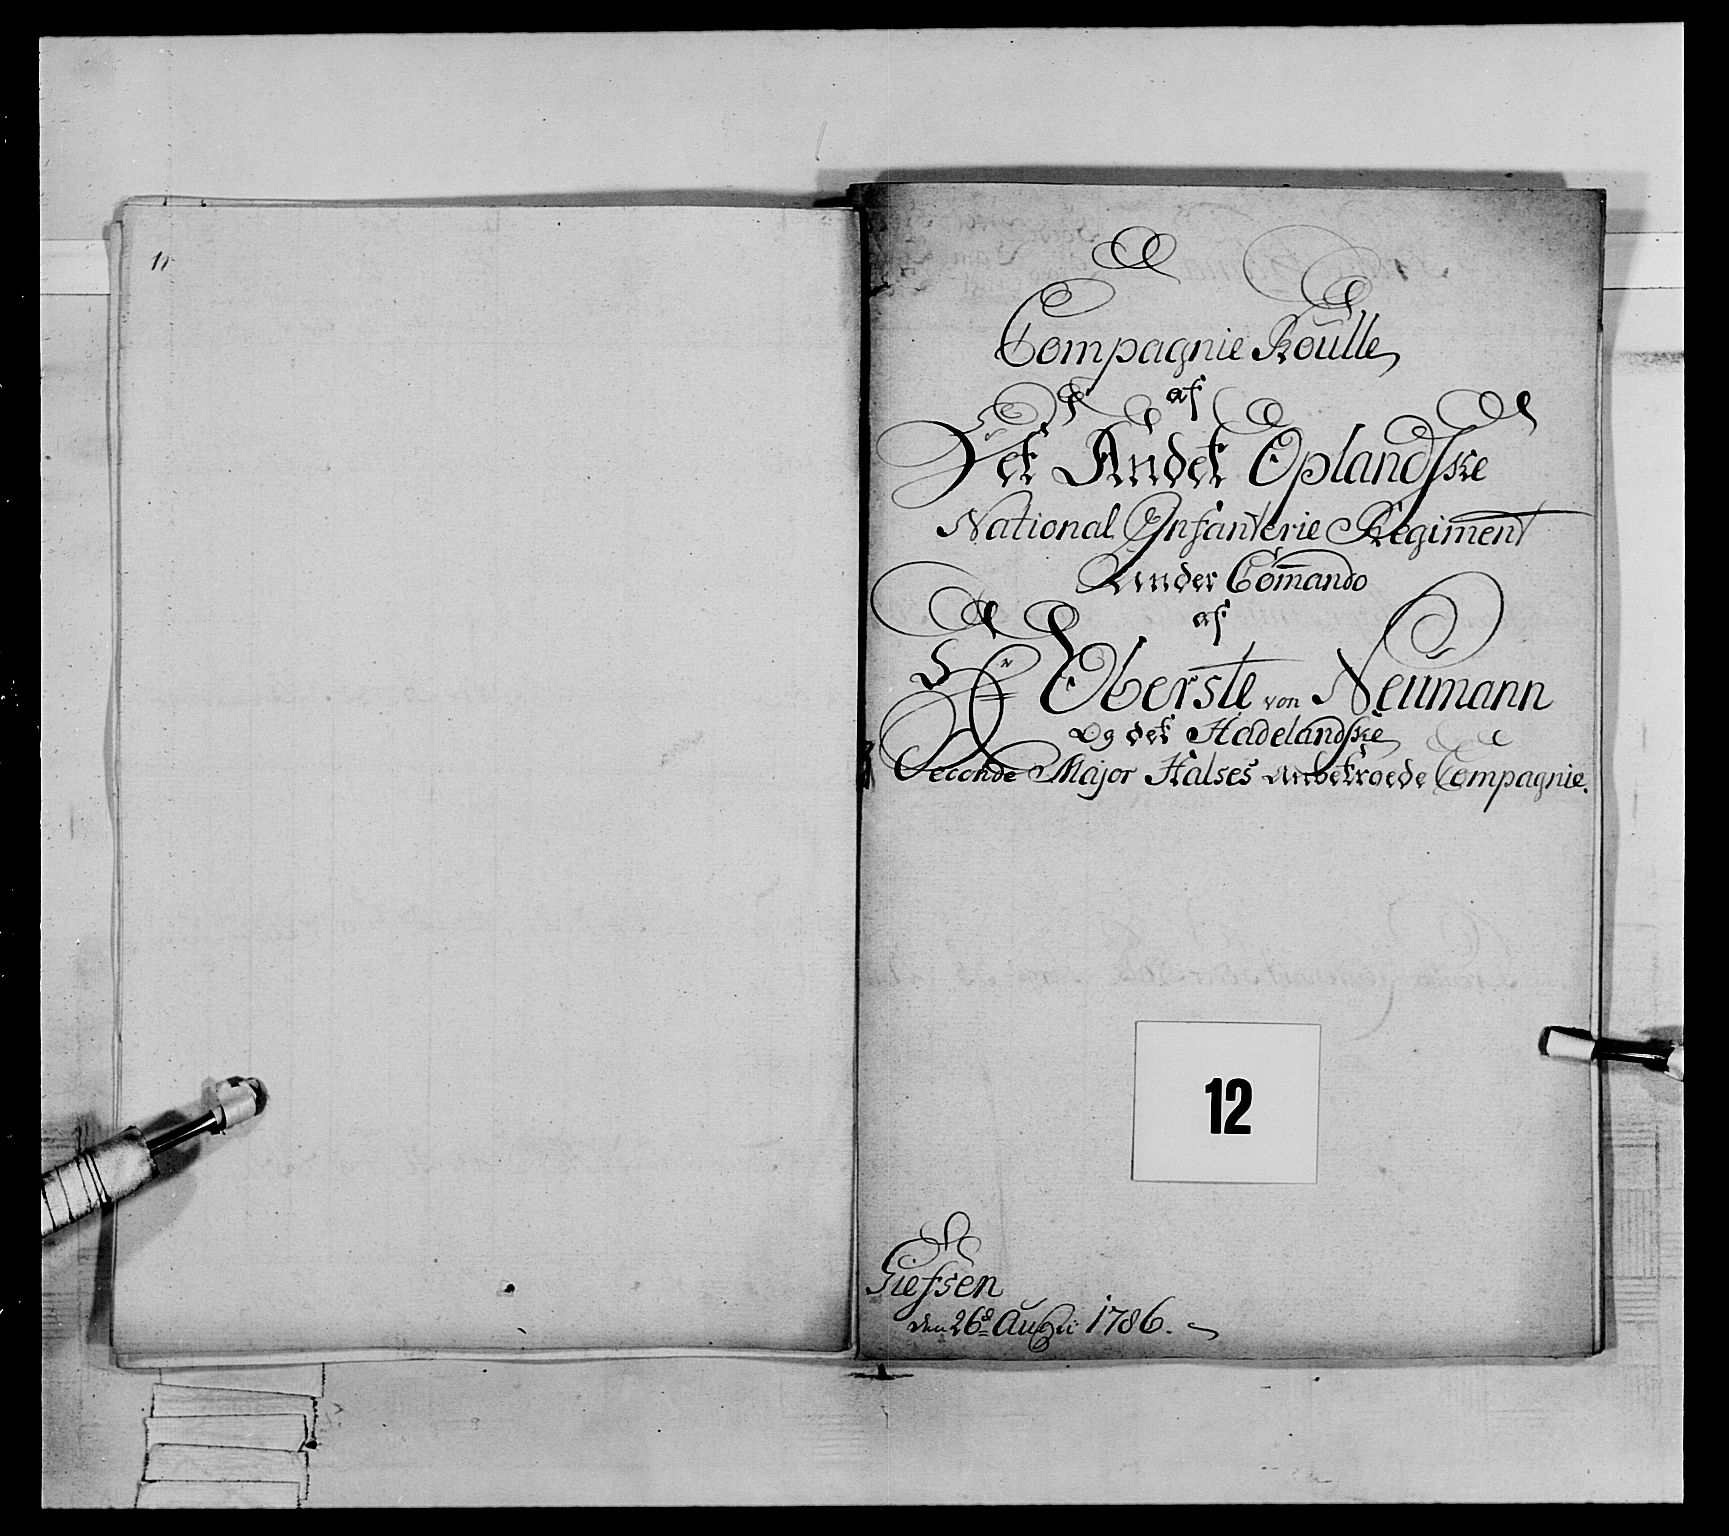 11
Compagnie Roulle
af
Det Andet Oplandske
National Infanterie Regiment
Under Com̄ando
af
Hr Oberste von Neumann
Og det Hadelandske
Seconde Major Halses Anbetroede Compagnie.
12
Giefsen
den 26de Augti 1786.